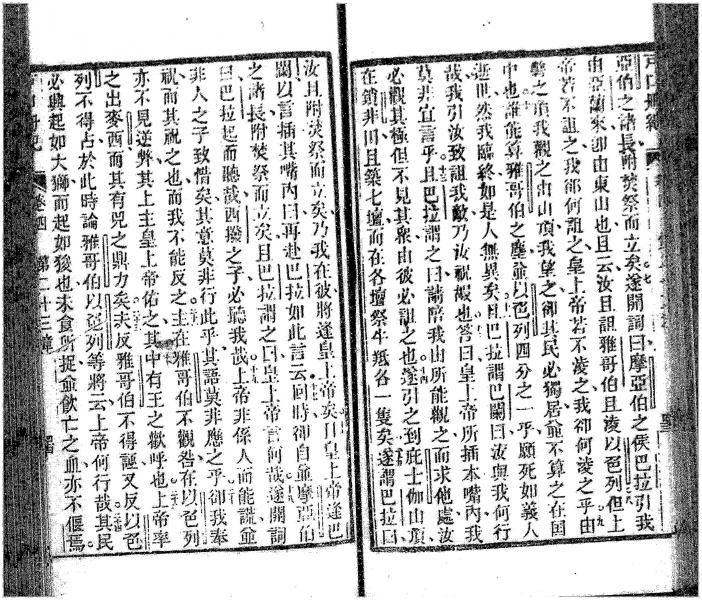 戶口冊紀
亞伯之諸長附焚祭而立矣遂開詞曰摩亞伯之侯巴拉引我
由亞蘭來卽由東山也且云汝且詛雅哥伯且淩以色列但上
帝若不詛之我卻何詛之皇上帝若不淩之我卻何淩之乎由
磐之頂我觀之由山頂我望之卻其民必獨居並不算之在囯
中也誰能算雅哥伯之塵並以色列四分之一乎願死如義人
逝世然我臨終如是人無異矣且巴拉謂巴闌曰汝與我何行
哉我引汝致詛我敵乃汝祝嘏也答曰皇上帝所插本嘴內我
莫非宜言乎且巴拉謂之曰請陪我由所能觀之而求他處汝
必觀其極但不見其衆由彼必詛之也遂引之到庇士伽山頂
在鎖非田且築七壇而在各壇祭牛羝各一隻矣遂謂巴拉曰
汝且附焚祭而立矣乃我在彼將逢皇上帝矣且皇上帝逢巴
闌以言插其嘴內曰再赴巴拉如此言云回時卻自並摩亞伯
之諸長附焚祭而立矣且巴拉謂之曰皇上帝言何哉遂開詞
曰巴拉起而聽哉西撥之子必聽我哉上帝非係人而能謊並
非人之子致惜矣其意莫非行此乎其語莫非應之乎卻我奉
祝而其祝之也而我不能反之主在雅哥伯不觀咎在以色列
亦不見逆弊其上主皇上帝佑之其中有王之歡呼也上帝率
之出麥西而其有兕之鼎力矣夫反雅哥伯不得誣又反以色
列不得占於此時論雅哥伯以色列等將云上帝何行哉其民
必興起如大獅而起如也未食所捉並飲亡之血亦不偃焉
卷四 第二十三章